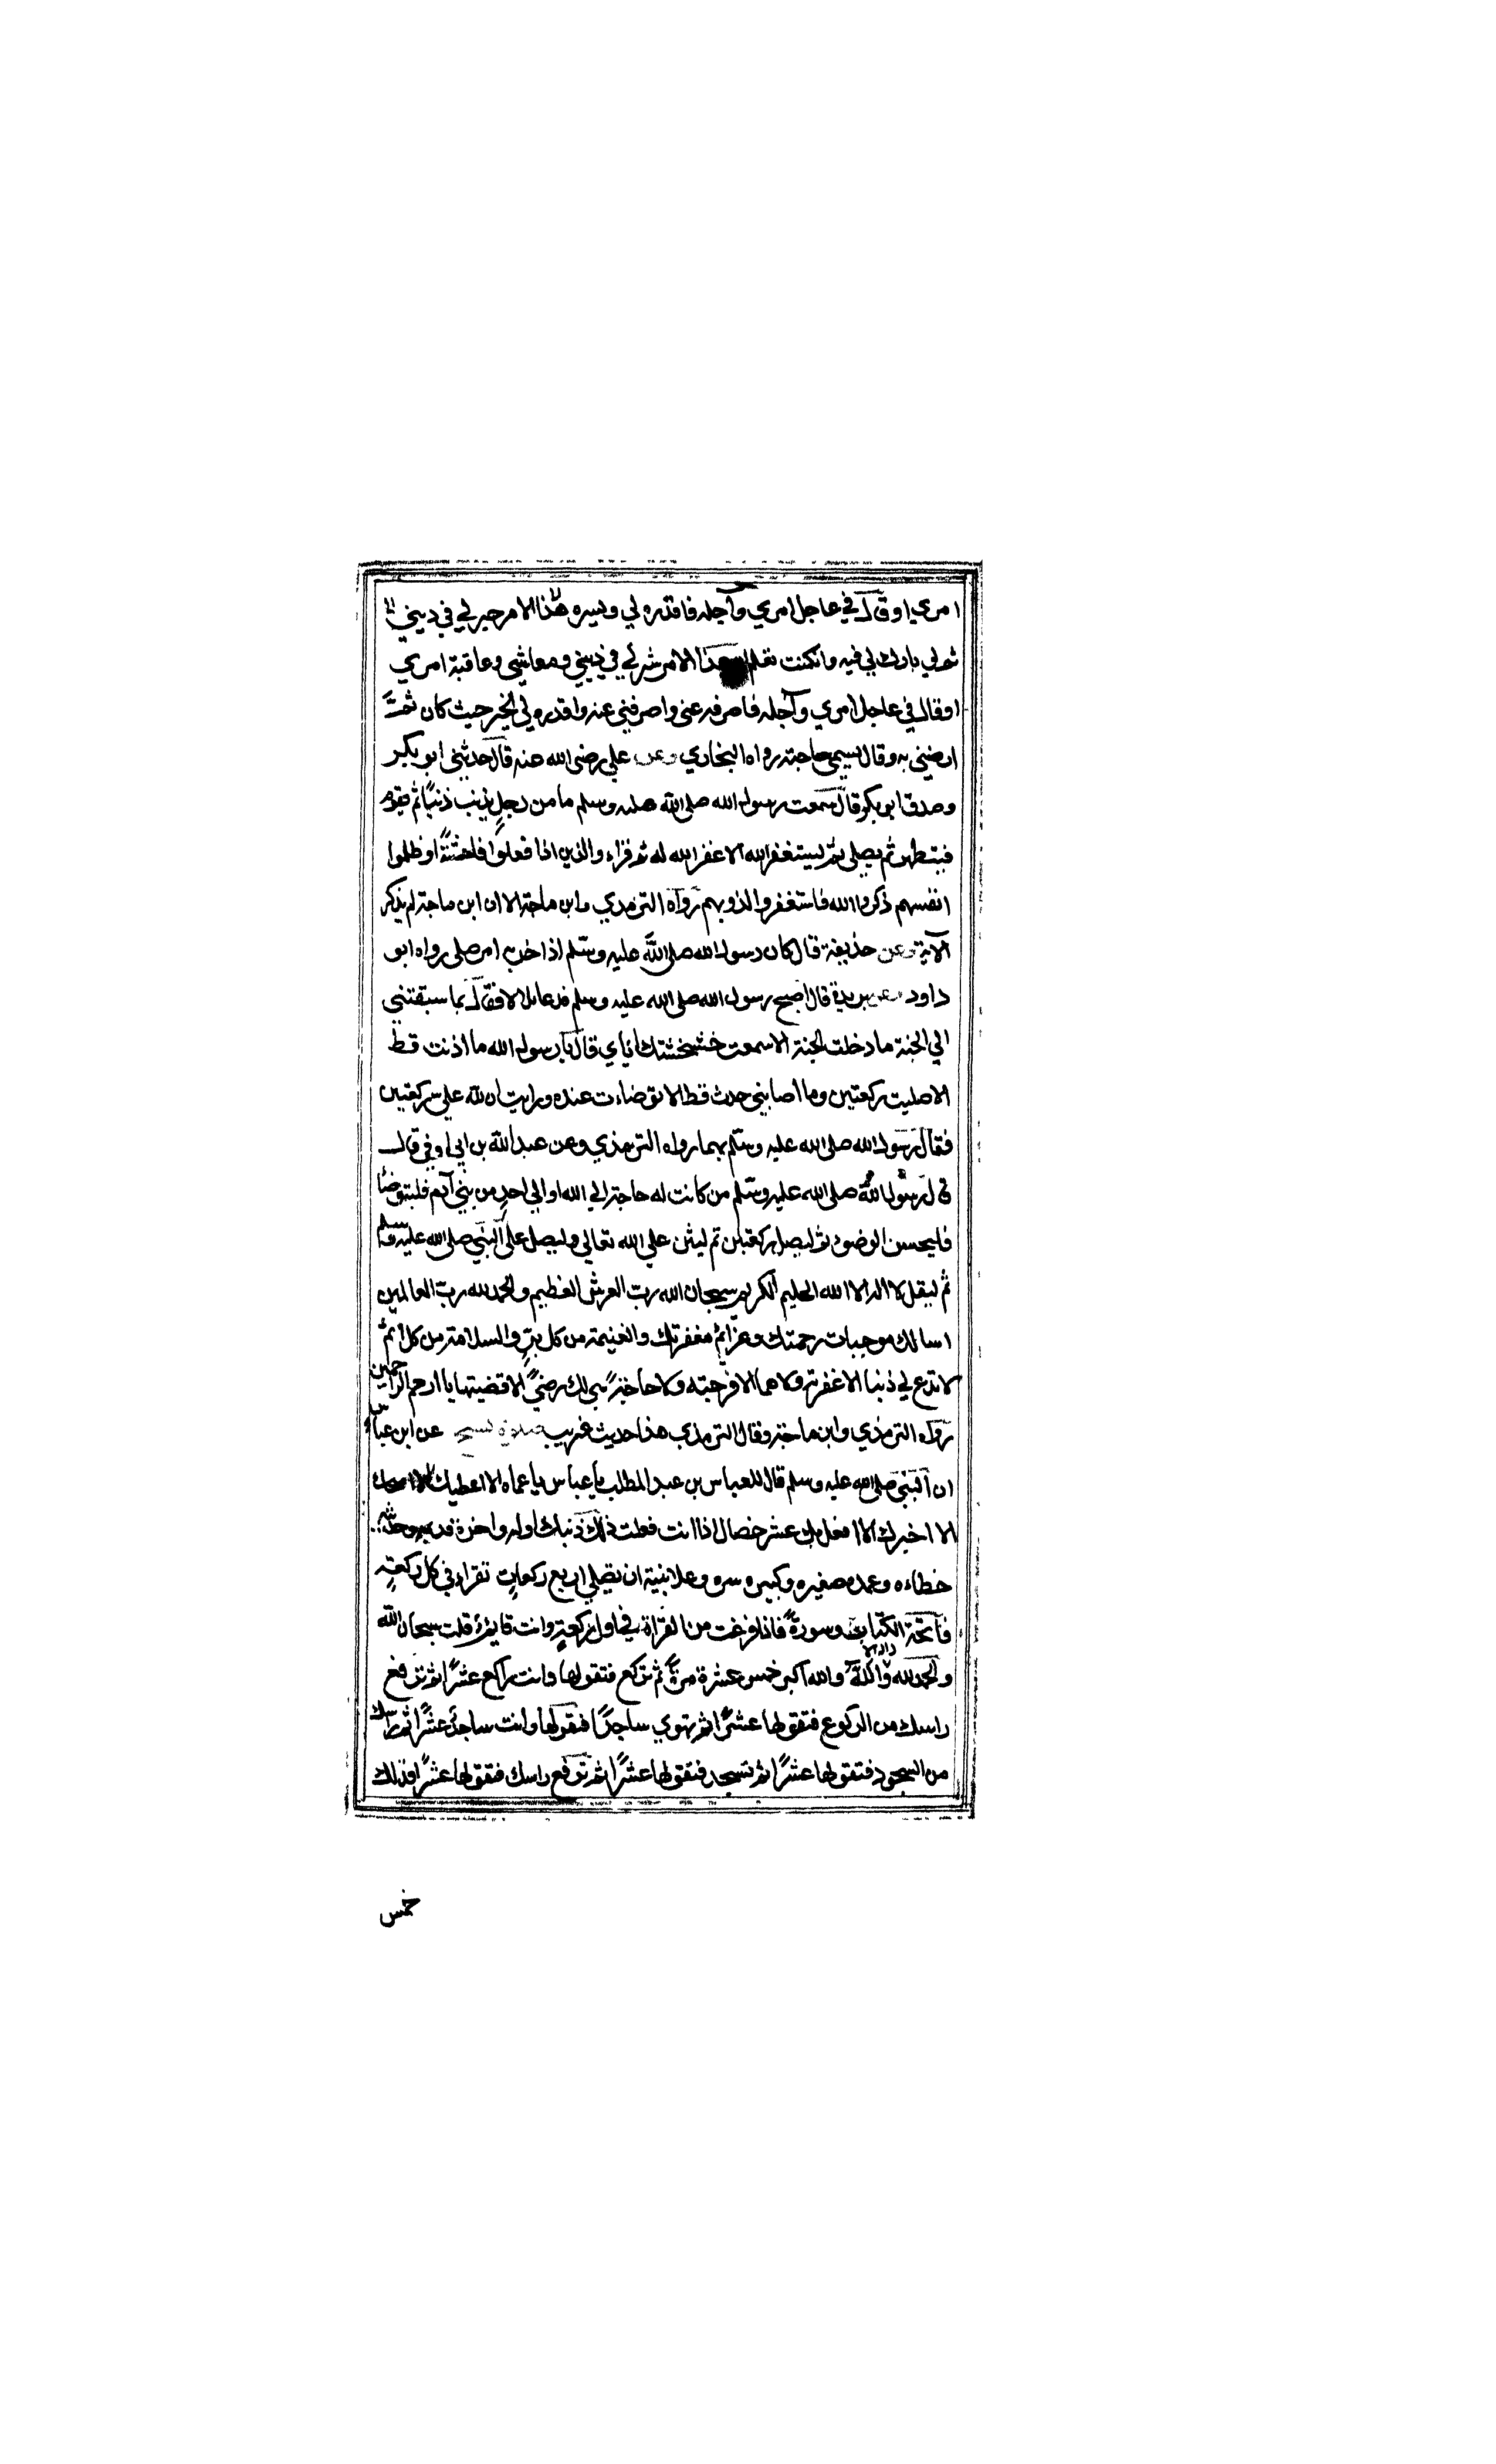 امري او قال في عاجل امري وآجله فاقدره لي ويسره هذا الامر خير لي في ديني
ثم لي بارك لي فيه وان كنت تعلم هذا الامر شر لي في ديني ومعاشي وعاقبة امري
او قال في عاجل امري وآجله فاصرفه عني واصرفني عنه واقدره لي الخير حيث كان ثم
ارضني به وقال يسمي حاجته رواه البخاري وعن علي رضي الله عنه قال حدثني ابو بكر
وصدق ابو بكر قال سمعت رسول الله صلى الله عليه وسلم ما من رجل يذنب ذنبا ثم يقوم
فيتطهر ثم يصلي ثم ليستغفر الله الا غفر الله له ثم قراء والذين اذا فعلوا فاحشة او ظلموا
انفسهم ذكروا الله فاستغفروا لذنوبهم رواه الترمذي وابن ماجة الا ان ابن ماجة لم يذكر
الآية وعن حذيفة قال كان رسول الله صلى الله عليه وسلم اذا حزبه امر صلى رواه ابو
داود وعن بريدة قال اصبح رسول الله صلى الله عليه وسلم فدعا بلالا فقال بما سبقتني
الي الجنة ما دخلت الجنة الا سمعت خشخشتك اياي قال يا رسول الله ما اذنت قط
الا صليت ركعتين وما اصابني حدث قط الا توضاءت عنده ورايت ان لله علي ركعتين
فقال رسول الله صلى الله عليه وسلم بهما رواه الترمذي وعن عبد الله بن ابي اوفي قال
قال رسول الله صلى الله عليه وسلم من كانت له حاجة الي الله او الي احد من بني آدم فليتوضأ
فليحسن الوضوء ثم ليصل ركعتين ثم ليثن علي الله تعالي وليصل على النبي صلى الله عليه وسلم
ثم ليقل لا اله الا الله الحليم الكريم سبحان الله رب العرش العظيم والحمد لله رب العالمين
اسالك موجبات رحمتك وعزائم مغفرتك والغنيمة من كل بر والسلامة من كل اثم
لا تدع لي ذنبا الا غفرته ولا هما الا فرجته ولا حاجة هي لك رضيً الا قضيتها يا ارحم الراحمين
رواه الترمذي وابن ماجة وقال الترمذي هذا حديث غريب صلاة تسبيح عن ابن عباس
ان النبي صلى الله عليه وسلم قال للعباس بن عبد المطلب يا عباس يا عماه الا اعطيك الا امنحك
الا اخبرك الا افعل بك عشر خصال اذا انت فعلت ذلك ذنبك اوله واخره قديمه وحديثه
خطاءه وعمده صغيره وكبيره سره وعلانية ان تصلي اربع ركعات تقراء في كل ركعة
فاتحة الكتاب وسورة فاذا فرغت من القراة في اول ركعة وانت قايم قلت سبحان الله
والحمد لله ولا اله الا الله والله اكبر خمس عشرة مرة ثم تركع فتقولها وانت راكع عشرًا ثم ترفع
راسك من الركوع فتقولها عشرًا ثم تهوي ساجدًا فتقولها وانت ساجد عشرًا ثم راسك
من السجود فتقولها عشرًا ثم تسجد فتقولها عشرًا ثم ترفع راسك فتقولها عشرًا فذلك
خمس